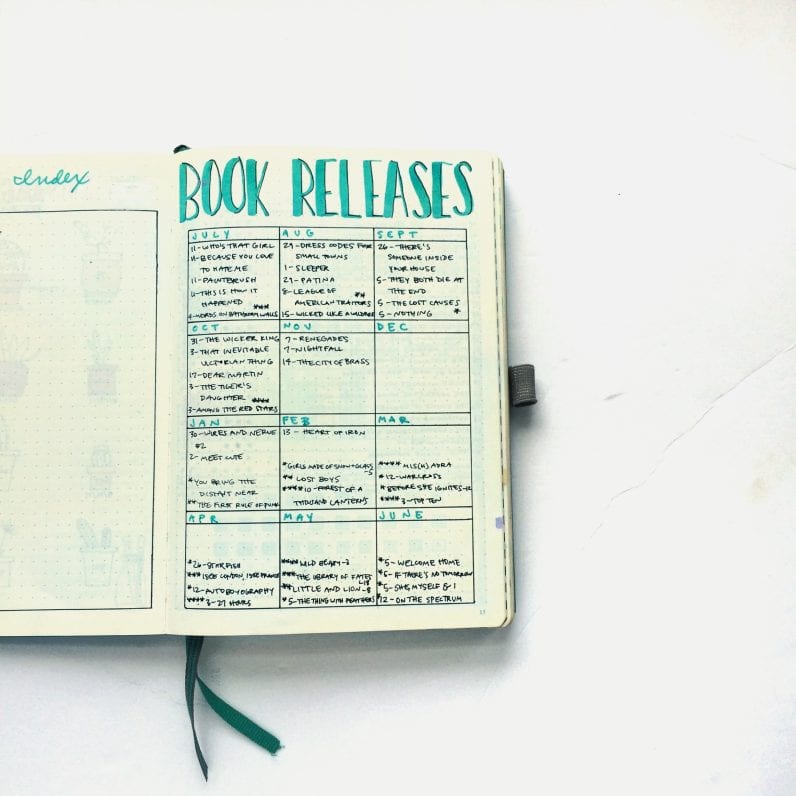 Index
BOOK RELEASES
JULY
11-WHO'S THAT GIRL
11-BECAUSE YOU LOVE
TO HATE ME
11-PAINTBRUSH
11-THIS IS HOW IT
HAPPENED ***
4-WORDS ON BATHROOM WALLS
AUG
29-DRESS CODES FOR
SMALL TOWNS
1-SLEEPER
29-PATINA
8-LEAGUE OF
AMERICAN TRAITORS **
15-WICKED LIKE A WILDFIRE
SEPT
26-THERE'S
SOMEONE INSIDE
YOUR HOUSE
5-THEY BOTH DIE AT
THE END
5-THE LOST CAUSES
5-NOTHING *
OCT
31-THE WICKER KING
3-THAT INEVITABLE
VICTORIAN THING
17-DEAR MARTIN
3-THE TIGER'S
DAUGHTER ****
3-AMONG THE RED STARS
NOV
7-RENEGADES
7-NIGHTFALL
14-THE CITY OF BRASS
DEC
JAN
30-WIRES AND NERVE
#2
2-MEET CUTE
*YOU BRING THE
DISTANT NEAR
**THE FIRST RULE OF PUNK
FEB
13-HEART OF IRON
*GIRLS MADE OF SNOW+GLASS
-5
**LOST BOYS
****10-FOREST OF A
THOUSAND LANTERNS
MAR
****MIS(H)ADRA
*12-WARCROSS
*BEFORE SHE IGNITES-12
****3-TOP TEN
APR
*26-STARFISH
*12-AUTOBOYOGRAPHY
****3-27 HOURS
MAY
****WILD BEAUTY-3
***THE LIBRARY OF FATES
-L18
**LITTLE AND LION-8
*5-THE THING WITH FEATHERS
JUNE
*5-WELCOME HOME
*5-IF THERE'S NO TOMORROW
*5-SHE, MYSELF & I
*12-ON THE SPECTRUM